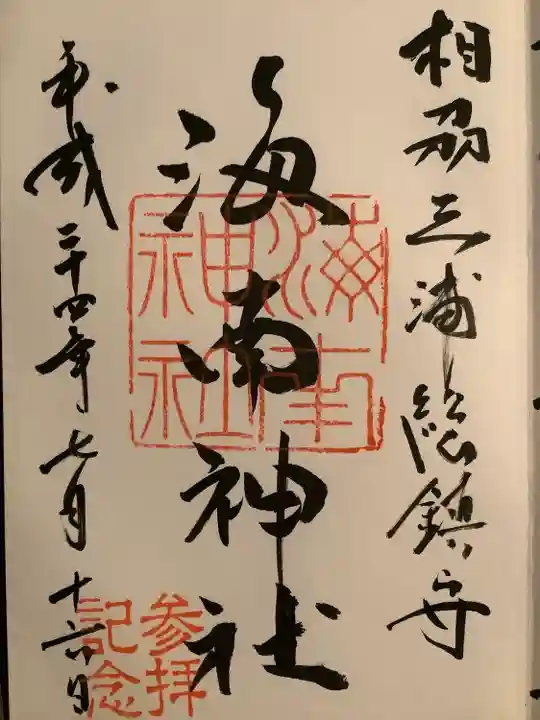 相刕三浦総鎮守
海南神社
海南神社
参拝記念
平成二十四年七月十六日